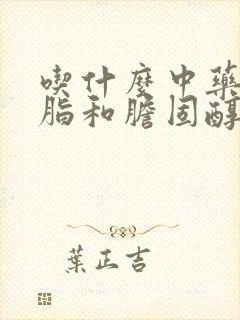 喫什麼中藥
脂和膽固醇
葉正吉